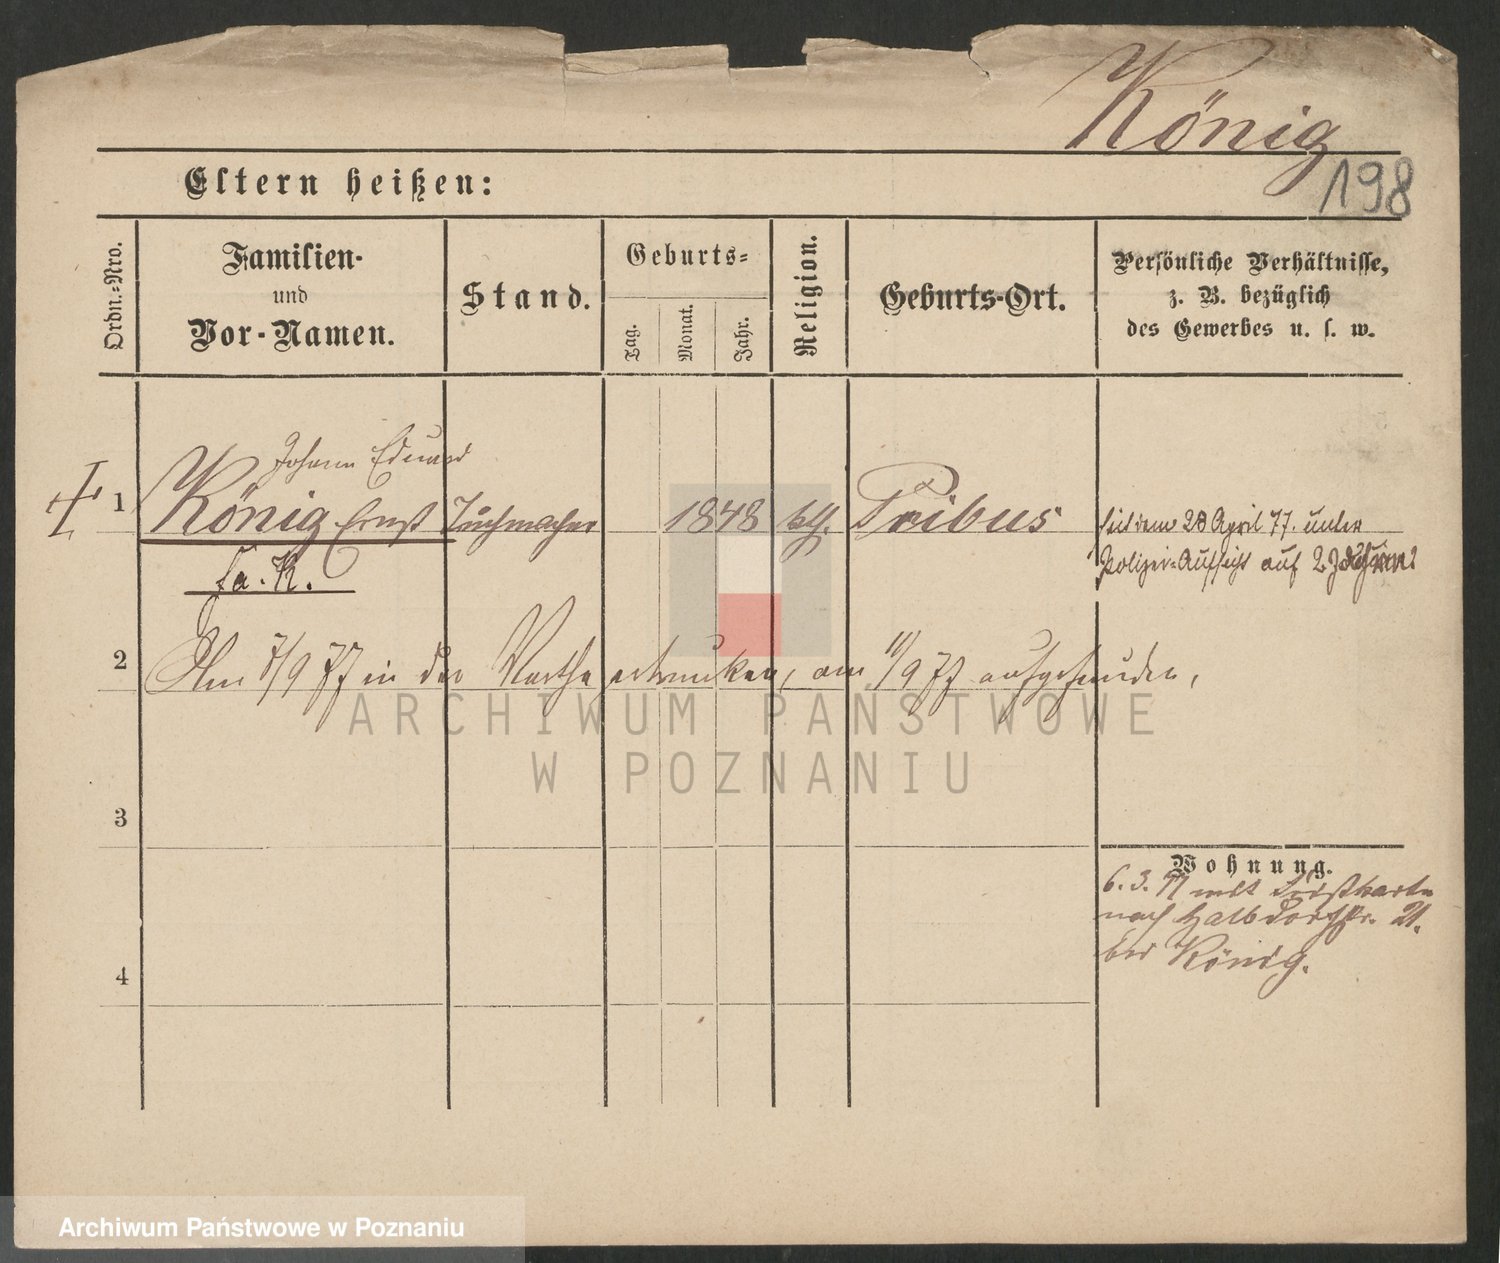 König
198
Eltern heißen:
Ordn.-Nro.
Familien-
und
Vor-Namen.
Stand.
Geburts-
Tag.
Monat.
Jahr.
Religion.
Geburts-Ort.
Persönliche Verhältnisse,
z. B. bezüglich
des Gewerbes u. s. w.
Johann Eduard
1 König Ernst Tuchmacher 1848 Pribus
seit dem 28 April 77. unter
Polizei-Aufsicht auf 2 Jahre
fa. K.
2 Am 7/9 77 in der Warthe ertrunken, am 10/9 77 aufgefunden,
3
Wohnung.
6. 3. 77 mit
nach Halbdorfstr. 21.
bei König.
4
ARCHIWUM PAŃSTWOWE
W POZNANIU
Archiwum Państwowe w Poznaniu